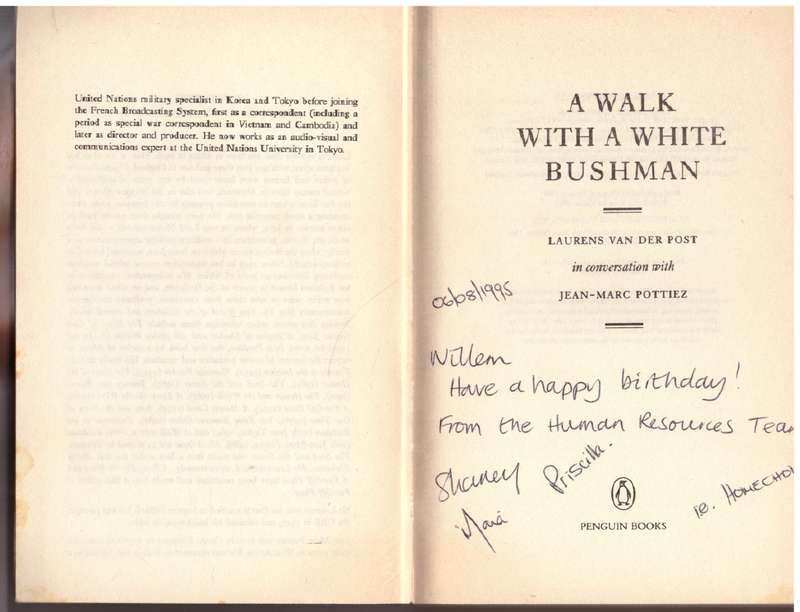 United Nations military specialist in Korea and Tokyo before joining
the French Broadcasting System, first as a correspondent (including a
period as special war correspondent in Vietnam and Cambodia) and
later as director and producer. He now works as an audio-visual and
communications expert at the United Nations University in Tokyo.
A WALK
WITH A WHITE
BUSHMAN
LAURENS VAN DER POST
in conversation with
JEAN-MARC POTTIEZ
06/08/1995
Willem
Have a happy birthday!
From the Human Resources Tea
Priscilla.
i.e. HOMECHOI
PENGUIN BOOKS